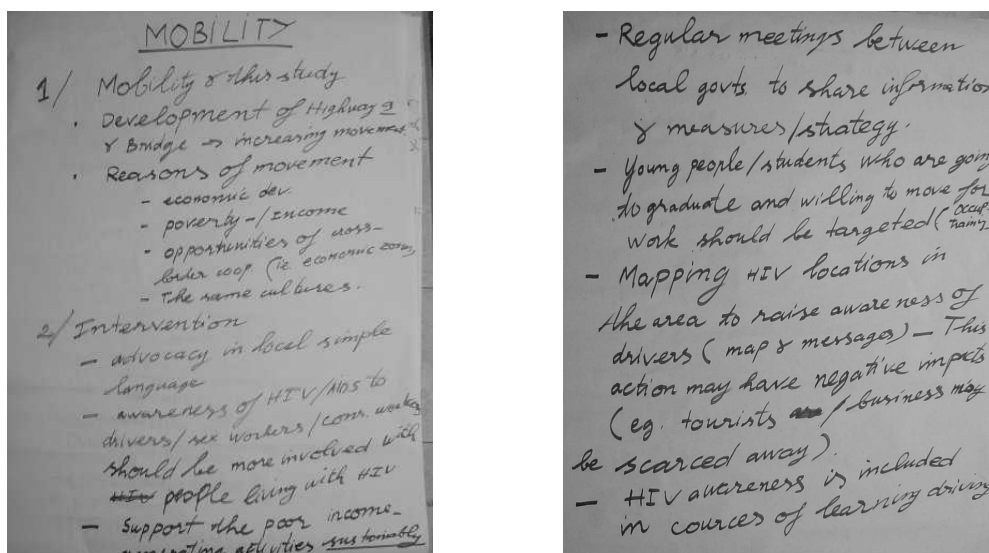 MOBILITY
1/ Mobility & this study
· Development of Highway 9
& Bridge → increasing movement
· Reasons of movement
- economic dev.
- poverty -/Income
- opportunities of cross-
border coop. (ie. economic zone
- The same cultures.
2/ Intervention
- advocacy in local simple
language
- awareness of HIV/AIDS to
drivers/sex workers/cons. workers
should be more involved with
people living with HIV
- Support the poor income-
generating activities sustainably
- Regular meetings between
local govts. to share information
& measures/strategy.
- Young people/students who are going
to graduate and willing to move for
work should be targeted (occup.
training
- Mapping HIV locations in
the area to raise awareness of
drivers (map & messages) - This
action may have negative impacts
(eg. tourists / business may
be scarced away).
- HIV awareness is included
in cources of learning driving